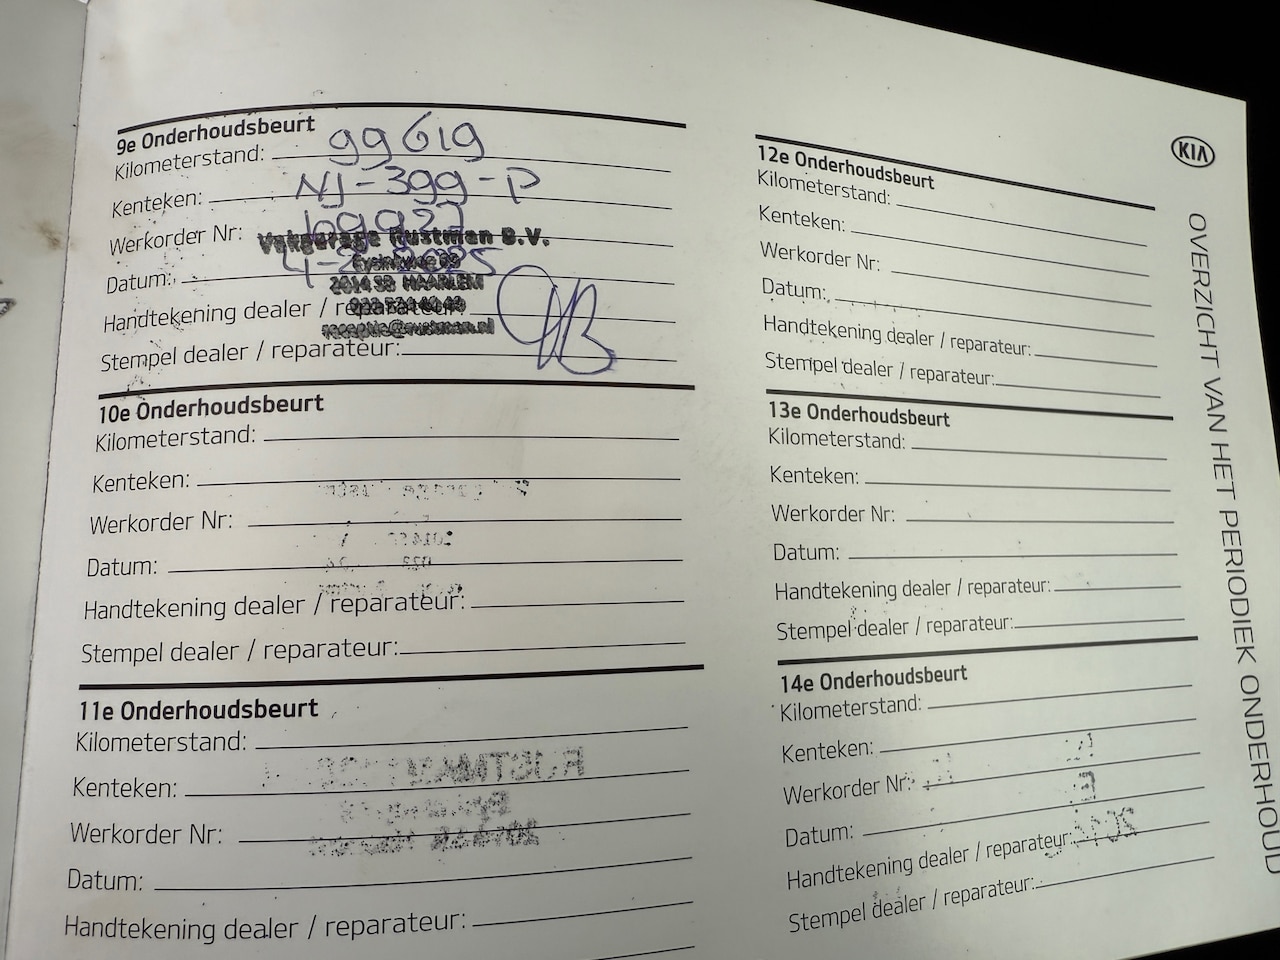 9e Onderhoudsbeurt
Kilometerstand: 99619
Kenteken: NJ-399-P
Werkorder Nr: 109927
Vakgarage Rustman B.V.
Datum: 4-2-2025
2014 SB HAARLEM
Handtekening dealer / reparateur:
receptie@rustman.nl
Stempel dealer / reparateur:
10e Onderhoudsbeurt
Kilometerstand:
Kenteken:
Werkorder Nr:
Datum:
Handtekening dealer / reparateur:
Stempel dealer / reparateur:
11e Onderhoudsbeurt
Kilometerstand:
Kenteken:
Werkorder Nr:
Datum:
Handtekening dealer / reparateur:
12e Onderhoudsbeurt
Kilometerstand:
Kenteken:
Werkorder Nr:
Datum:
Handtekening dealer / reparateur:
Stempel dealer / reparateur:
13e Onderhoudsbeurt
Kilometerstand:
Kenteken:
Werkorder Nr:
Datum:
Handtekening dealer / reparateur:
Stempel dealer / reparateur:
14e Onderhoudsbeurt
Kilometerstand:
Kenteken:
Werkorder Nr:
Datum:
Handtekening dealer / reparateur:
Stempel dealer / reparateur:
KIA
OVERZICHT VAN HET PERIODIEK ONDERHOUD